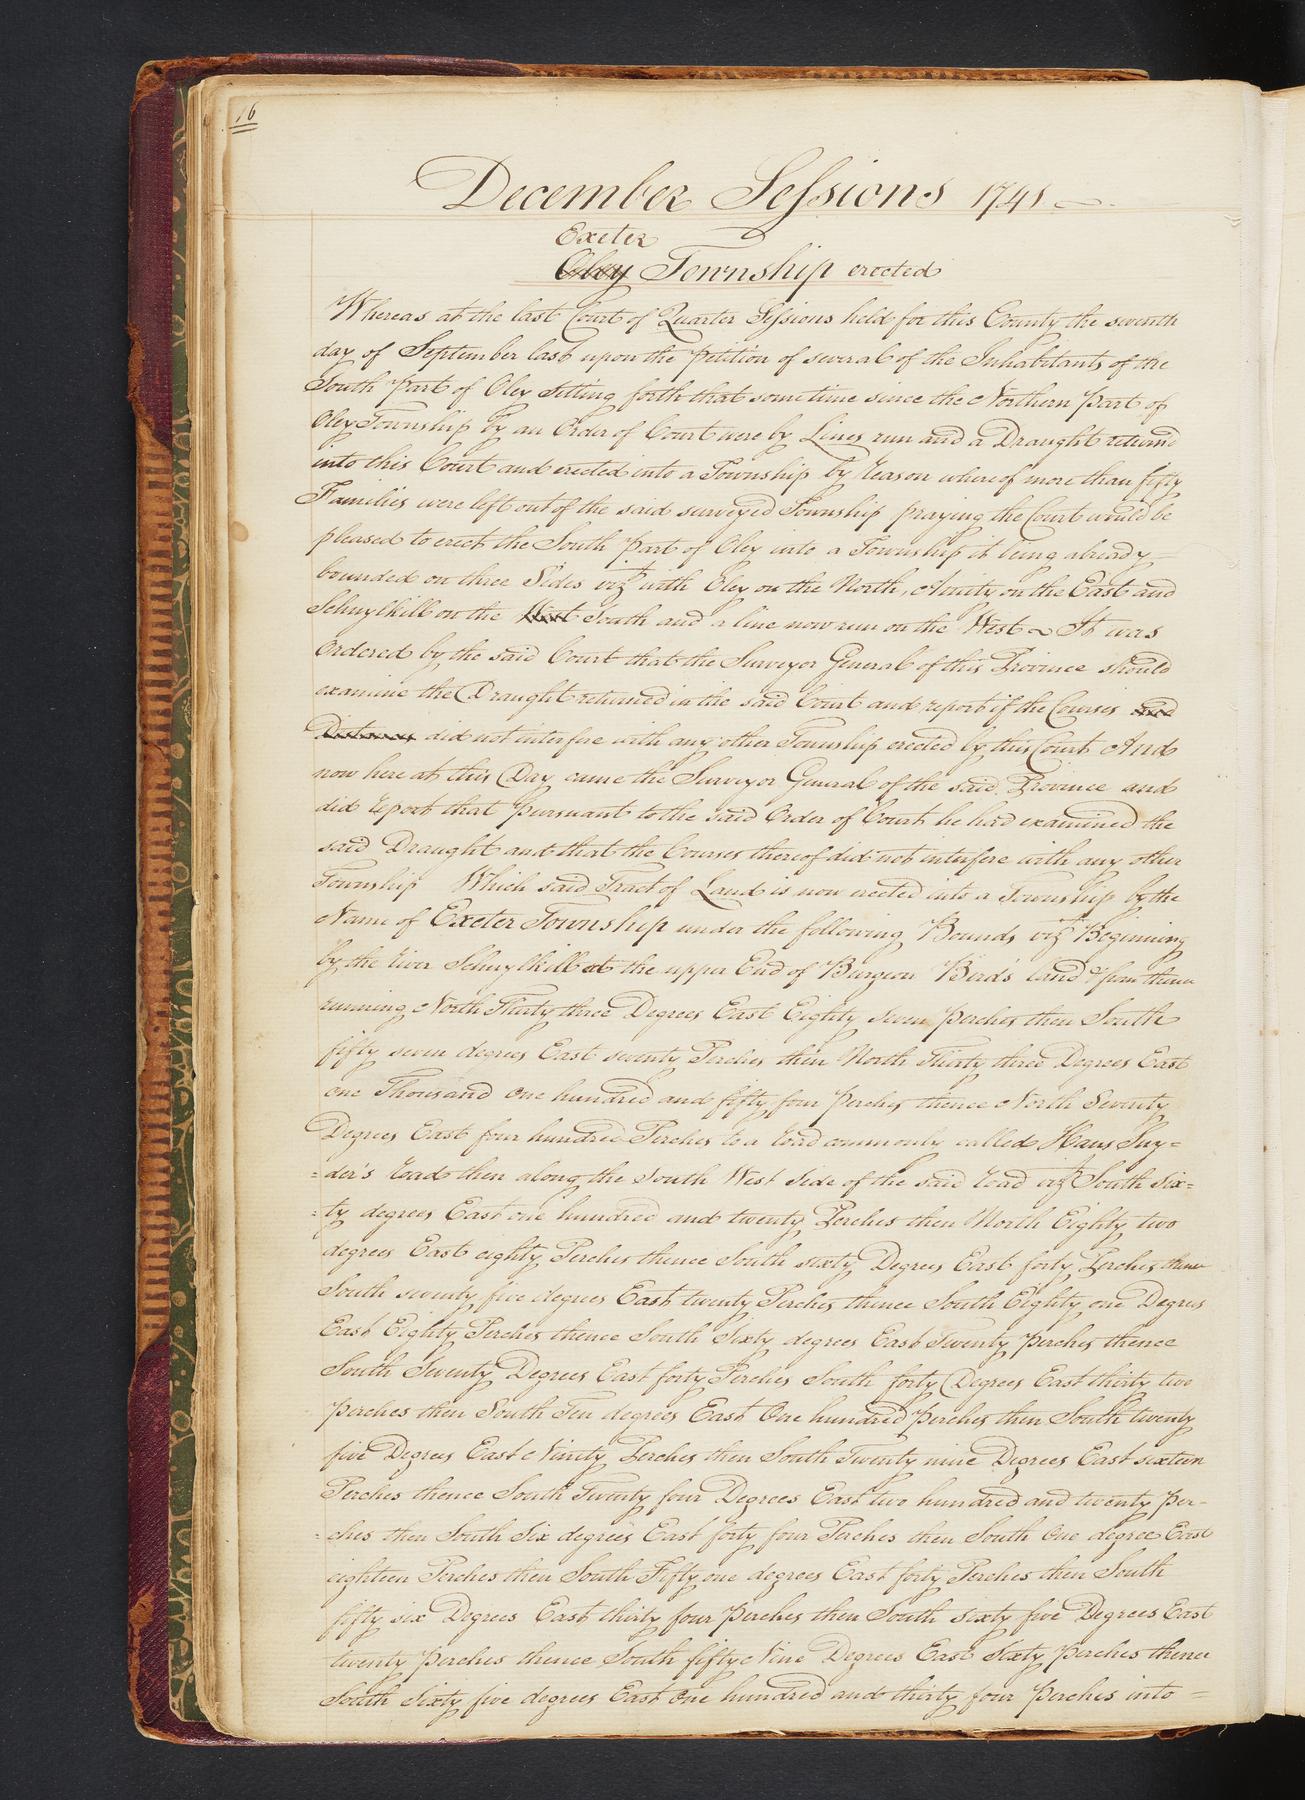 16
December Sessions 1741
Exeter
Oley Township erected
Whereas at the last Court of Quarter Sessions held for this County the seventh
day of September last upon the Petition of several of the Inhabitants of the
South Part of Oley Setting forth that some time since the Northern Part of
Oley Township by an Order of Court were by Lines run and a Draught returnd
into this Court and erected into a Township by reason whereof more than fifty
Families were left out of the said surveyed Township praying the Court would be
pleased to erect the South part of Oley into a Township it being already
bounded on three Sides vizt with Oley on the North, Amity on the East and
Schuylkill on the West South and a line now run on the West ~ It was
Ordered by the said Court that the Surveyor General of this Province should
examine the Draught returned in the said Court and report if the Courses and
Distances did not interfere with any other Township erected by this Court And
now here at this Day came the Surveyor General of the said Province and
did report that pursuant to the said Order of Court he had examined the
said Draught and that the Courses thereof did not interfere with any other
Township Which said Tract of Land is now erected into a Township by the
Name of Exeter Township under the following Bounds vizt Beginning
by the River Schuylkill at the upper End of Burgeon Bird's land & from thence
running North Thirty three Degrees East Eighty seven perches then South
fifty seven degrees East seventy Perches then North Thirty three Degrees East
one Thousand one hundred and fifty four perches thence North Seventy
Degrees East four hundred Perches to a road commonly called Hans Sny=
=der's road then along the South West Side of the said road vizt South six=
=ty degrees East one hundred and twenty Perches then North Eighty two
degrees East eighty Perches thence South sixty Degrees East forty Perches thence
South seventy five degrees East twenty Perches thence South Eighty one Degrees
East Eighty Perches thence South Sixty degrees East Twenty perches thence
South Seventy Degrees East forty Perches South forty Degrees East thirty two
perches then South Ten degrees East One hundred perches then South twenty
five Degrees East Ninty Perches then South Twenty nine Degrees East sixteen
Perches thence South Twenty four Degrees East two hundred and twenty per-
-ches then South Six degrees East forty four Perches then South One degree East
eighteen Perches then South Fifty one degrees East forty Perches then South
fifty six Degrees East thirty four perches then South sixty five Degrees East
twenty perches thence South fifty Nine Degrees East Sixty perches thence
South Sixty five degrees East One hundred and thirty four perches into =